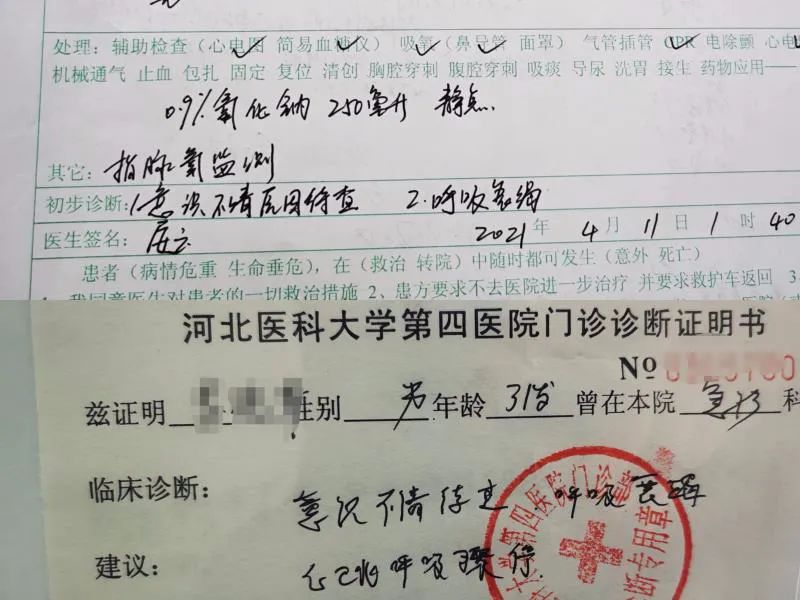 处理：辅助检查（心电图 简易血糖仪） 吸氧（鼻导管 面罩） 气管插管 CPR 电除颤 心电
机械通气 止血 包扎 固定 复位 清创 胸腔穿刺 腹腔穿刺 吸痰 导尿 洗胃 接生 药物应用——
0.9%氯化钠 250毫升 静点
其它：指脉氧监测
初步诊断：1.意识不清原因待查 2.呼吸衰竭
医生签名： 2021年4月11日1时40
患者（病情危重 生命垂危），在（救治 转院）中随时都可发生（意外 死亡）
1、我同意医生对患者的一切救治措施 2、患方要求不去医院进一步治疗 并要求救护车返回 3
河北医科大学第四医院门诊诊断证明书
No
兹证明 性别 男 年龄 31岁 曾在本院 急诊 科
临床诊断： 意识不清待查 呼吸衰竭
建议：
心 呼吸骤停
第四医院门诊
断专用章